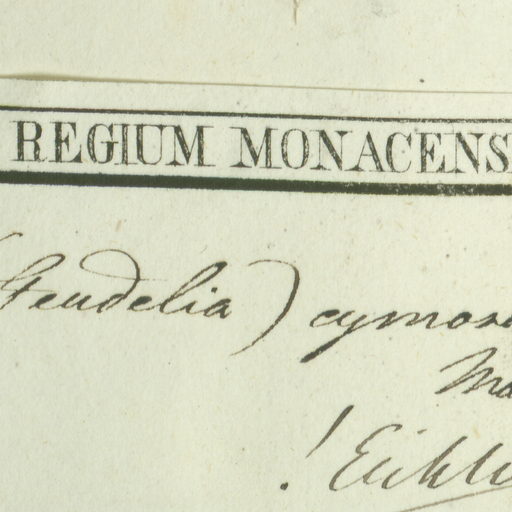 REGIUM MONACENS
(Gendelia) cymos
Ma
! Eichle